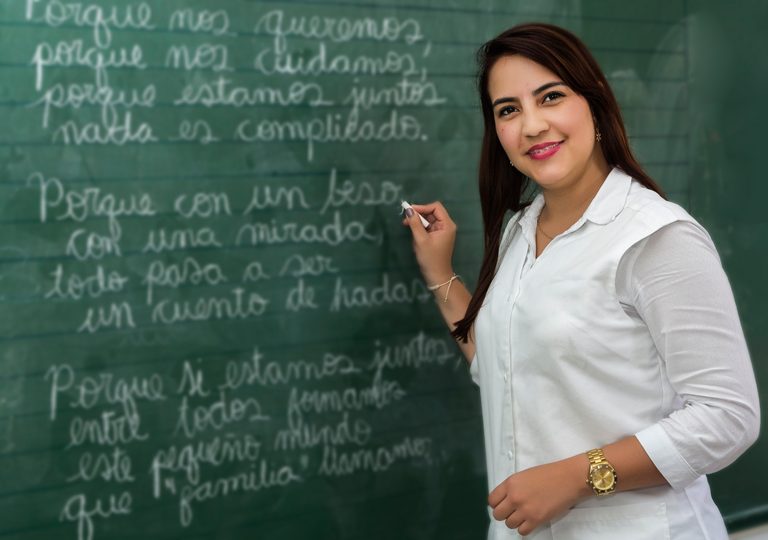 Porque nos queremos,
porque nos cuidamos,
porque estamos juntos
nada es complicado.
Porque con un beso
con una mirada,
todo pasa a ser
un cuento de hadas
Porque si estamos juntos,
entre todos formamos
este pequeño mundo
que "familia" llamamo